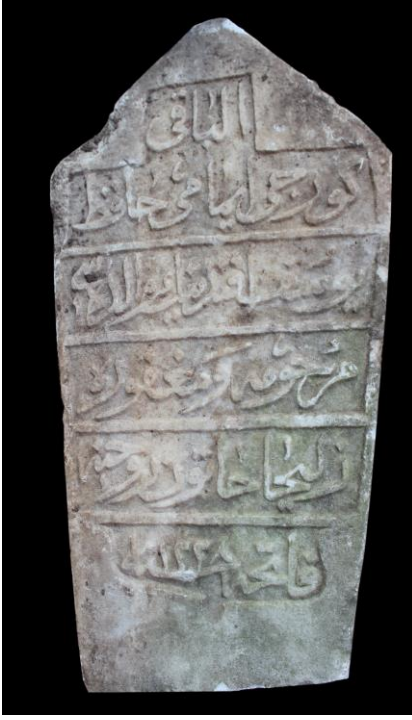 الباقى
امامى حافظ
يوسف افندينك
مرحومه و مغفوره
زليخا خاتون روحنه
فاتحه ١٢٢٨